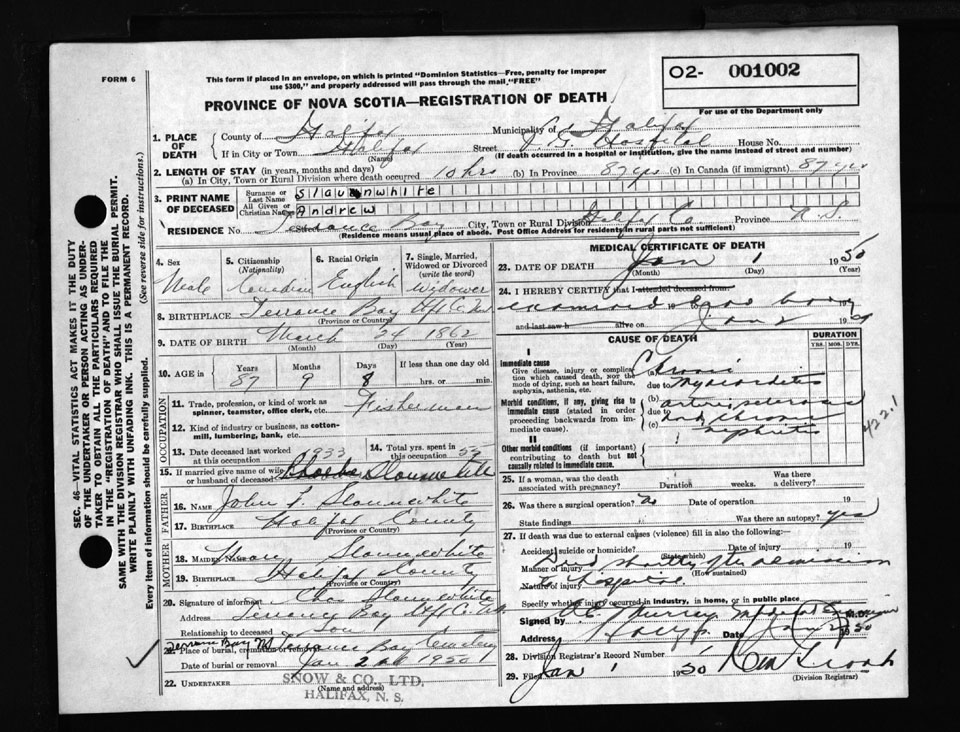 FORM 6
This form if placed in an envelope, on which is printed "Dominion Statistics—Free, penalty for improper
use $300," and properly addressed will pass through the mail, "FREE"
O2- 001002
For use of the Department only
PROVINCE OF NOVA SCOTIA—REGISTRATION OF DEATH
1. PLACE OF DEATH
County of Halifax Municipality of Halifax
If in City or Town Halifax Street V. G. Hospital House No.
(Name) (If death occurred in a hospital or institution, give the name instead of street and number)
2. LENGTH OF STAY (in years, months and days)
(a) In City, Town or Rural Division where death occurred 10 hrs (b) In Province 87 yrs (c) In Canada (if immigrant) 87 yrs
3. PRINT NAME OF DECEASED
Surname or Last Name Slaunwhite
All Given or Christian Names Andrew
RESIDENCE No. Street Terrance Bay City, Town or Rural Division Halifax Co. Province N.S.
(Residence means usual place of abode. Post Office Address for residents in rural parts not sufficient)
4. Sex Male
5. Citizenship (Nationality) Canadian
6. Racial Origin English
7. Single, Married, Widowed or Divorced (write the word) Widower
8. BIRTHPLACE Terrance Bay Hfx Co. N.S.
(Province or Country)
9. DATE OF BIRTH March 24 1862
(Month) (Day) (Year)
10. AGE in Years Months Days If less than one day old
87 9 8 hrs. or min.
OCCUPATION
11. Trade, profession, or kind of work as spinner, teamster, office clerk, etc. Fisherman
12. Kind of industry or business, as cotton-mill, lumbering, bank, etc.
13. Date deceased last worked at this occupation 1933
14. Total yrs. spent in this occupation 55
15. If married give name of wife or husband of deceased Slaunwhite
FATHER
16. Name John Slaunwhite
17. BIRTHPLACE Halifax County
(Province or Country)
MOTHER
18. MAIDEN NAME Slaunwhite
19. BIRTHPLACE Halifax County
(Province or Country)
20. Signature of informant Chas Slaunwhite
Address Terrance Bay Hfx Co. N.S.
Relationship to deceased Son
21. Place of burial, cremation or removal Terrance Bay Cemetery
Date of burial or removal Jan 2nd 1950
22. UNDERTAKER SNOW & CO., LTD.
(Name and address)
HALIFAX, N. S.
MEDICAL CERTIFICATE OF DEATH
23. DATE OF DEATH Jan 1 1950
(Month) (Day) (Year)
24. I HEREBY CERTIFY that I attended deceased from:
examined dead body 19
and last saw h alive on Jan 2 19
CAUSE OF DEATH
DURATION
YRS. MOS. DYS.
I
Immediate cause
Give disease, injury or complication which caused death, not the mode of dying, such as heart failure, asphyxia, asthenia, etc.
(a) Chronic
due to Myocarditis
Morbid conditions, if any, giving rise to immediate cause (stated in order proceeding backwards from immediate cause).
(b) arteriosclerosis
due to and chronic
(c) nephritis
422.1
II
Other morbid conditions (if important) contributing to death but not causally related to immediate cause.
25. If a woman, was the death associated with pregnancy? Duration weeks. Was there a delivery?
26. Was there a surgical operation? no Date of operation 19
State findings Was there an autopsy? yes
27. If death was due to external causes (violence) fill in also the following:
Accident, suicide or homicide (State which) Date of injury 19
Manner of injury died shortly after admission
(How sustained)
Nature of injury to hospital
Specify whether injury occurred in industry, in home, or in public place
Signed by Murray Medical Examiner
Address Halifax Date Jan 2 1950
28. Division Registrar's Record Number 1
29. Filed Jan 1 1950
(Division Registrar)
SEC. 46—VITAL STATISTICS ACT MAKES IT THE DUTY
OF THE UNDERTAKER OR PERSON ACTING AS UNDERTAKER TO OBTAIN ALL THE PARTICULARS REQUIRED
IN THE "REGISTRATION OF DEATH" AND TO FILE THE
SAME WITH THE DIVISION REGISTRAR WHO SHALL ISSUE THE BURIAL PERMIT.
WRITE PLAINLY WITH UNFADING INK. THIS IS A PERMANENT RECORD.
Every item of information should be carefully supplied. (See reverse side for instructions.)